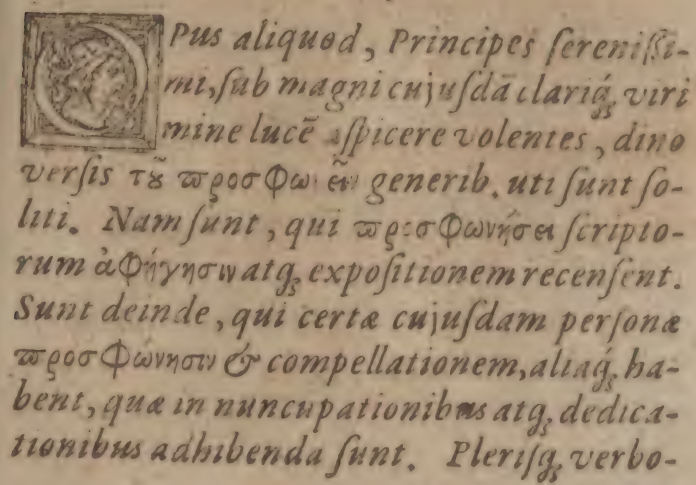 OPus aliquod, Principes sereniſſi-
mi, ſub magni cujuſdã clariq́; viri
mine lucẽ aſpicere volentes, dino
verſis τȣ͂ ϖροσφων generib. uti ſunt ſo-
liti. Nam ſunt, qui ϖροσφωνήσει ſcripto-
rum ἀφήγησιν atq; expoſitionem recenſent.
Sunt deinde, qui certæ cujuſdam perſonæ
ϖροσφώνησιν & compellationem, aliaq́; ha-
bent, quæ in nuncupationibus atq; dedica-
tionibus adhibenda ſunt. Pleriſq; verbo-